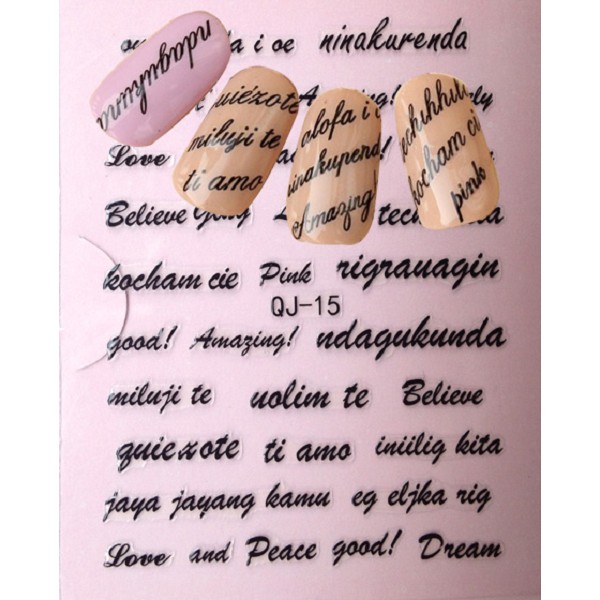 a i oe ninakurenda
quiézote
miluji te
ti amo
alofa i
Amazing!
kocham ci
pink
Love
Believe
kocham cie Pink rigrauagin
QJ-15
good! Amazing! ndagukunda
miluji te uolim te Believe
quiexote ti amo iniilig kita
jaya jayang kamu eg eljka rig
Love and Peace good! Dream